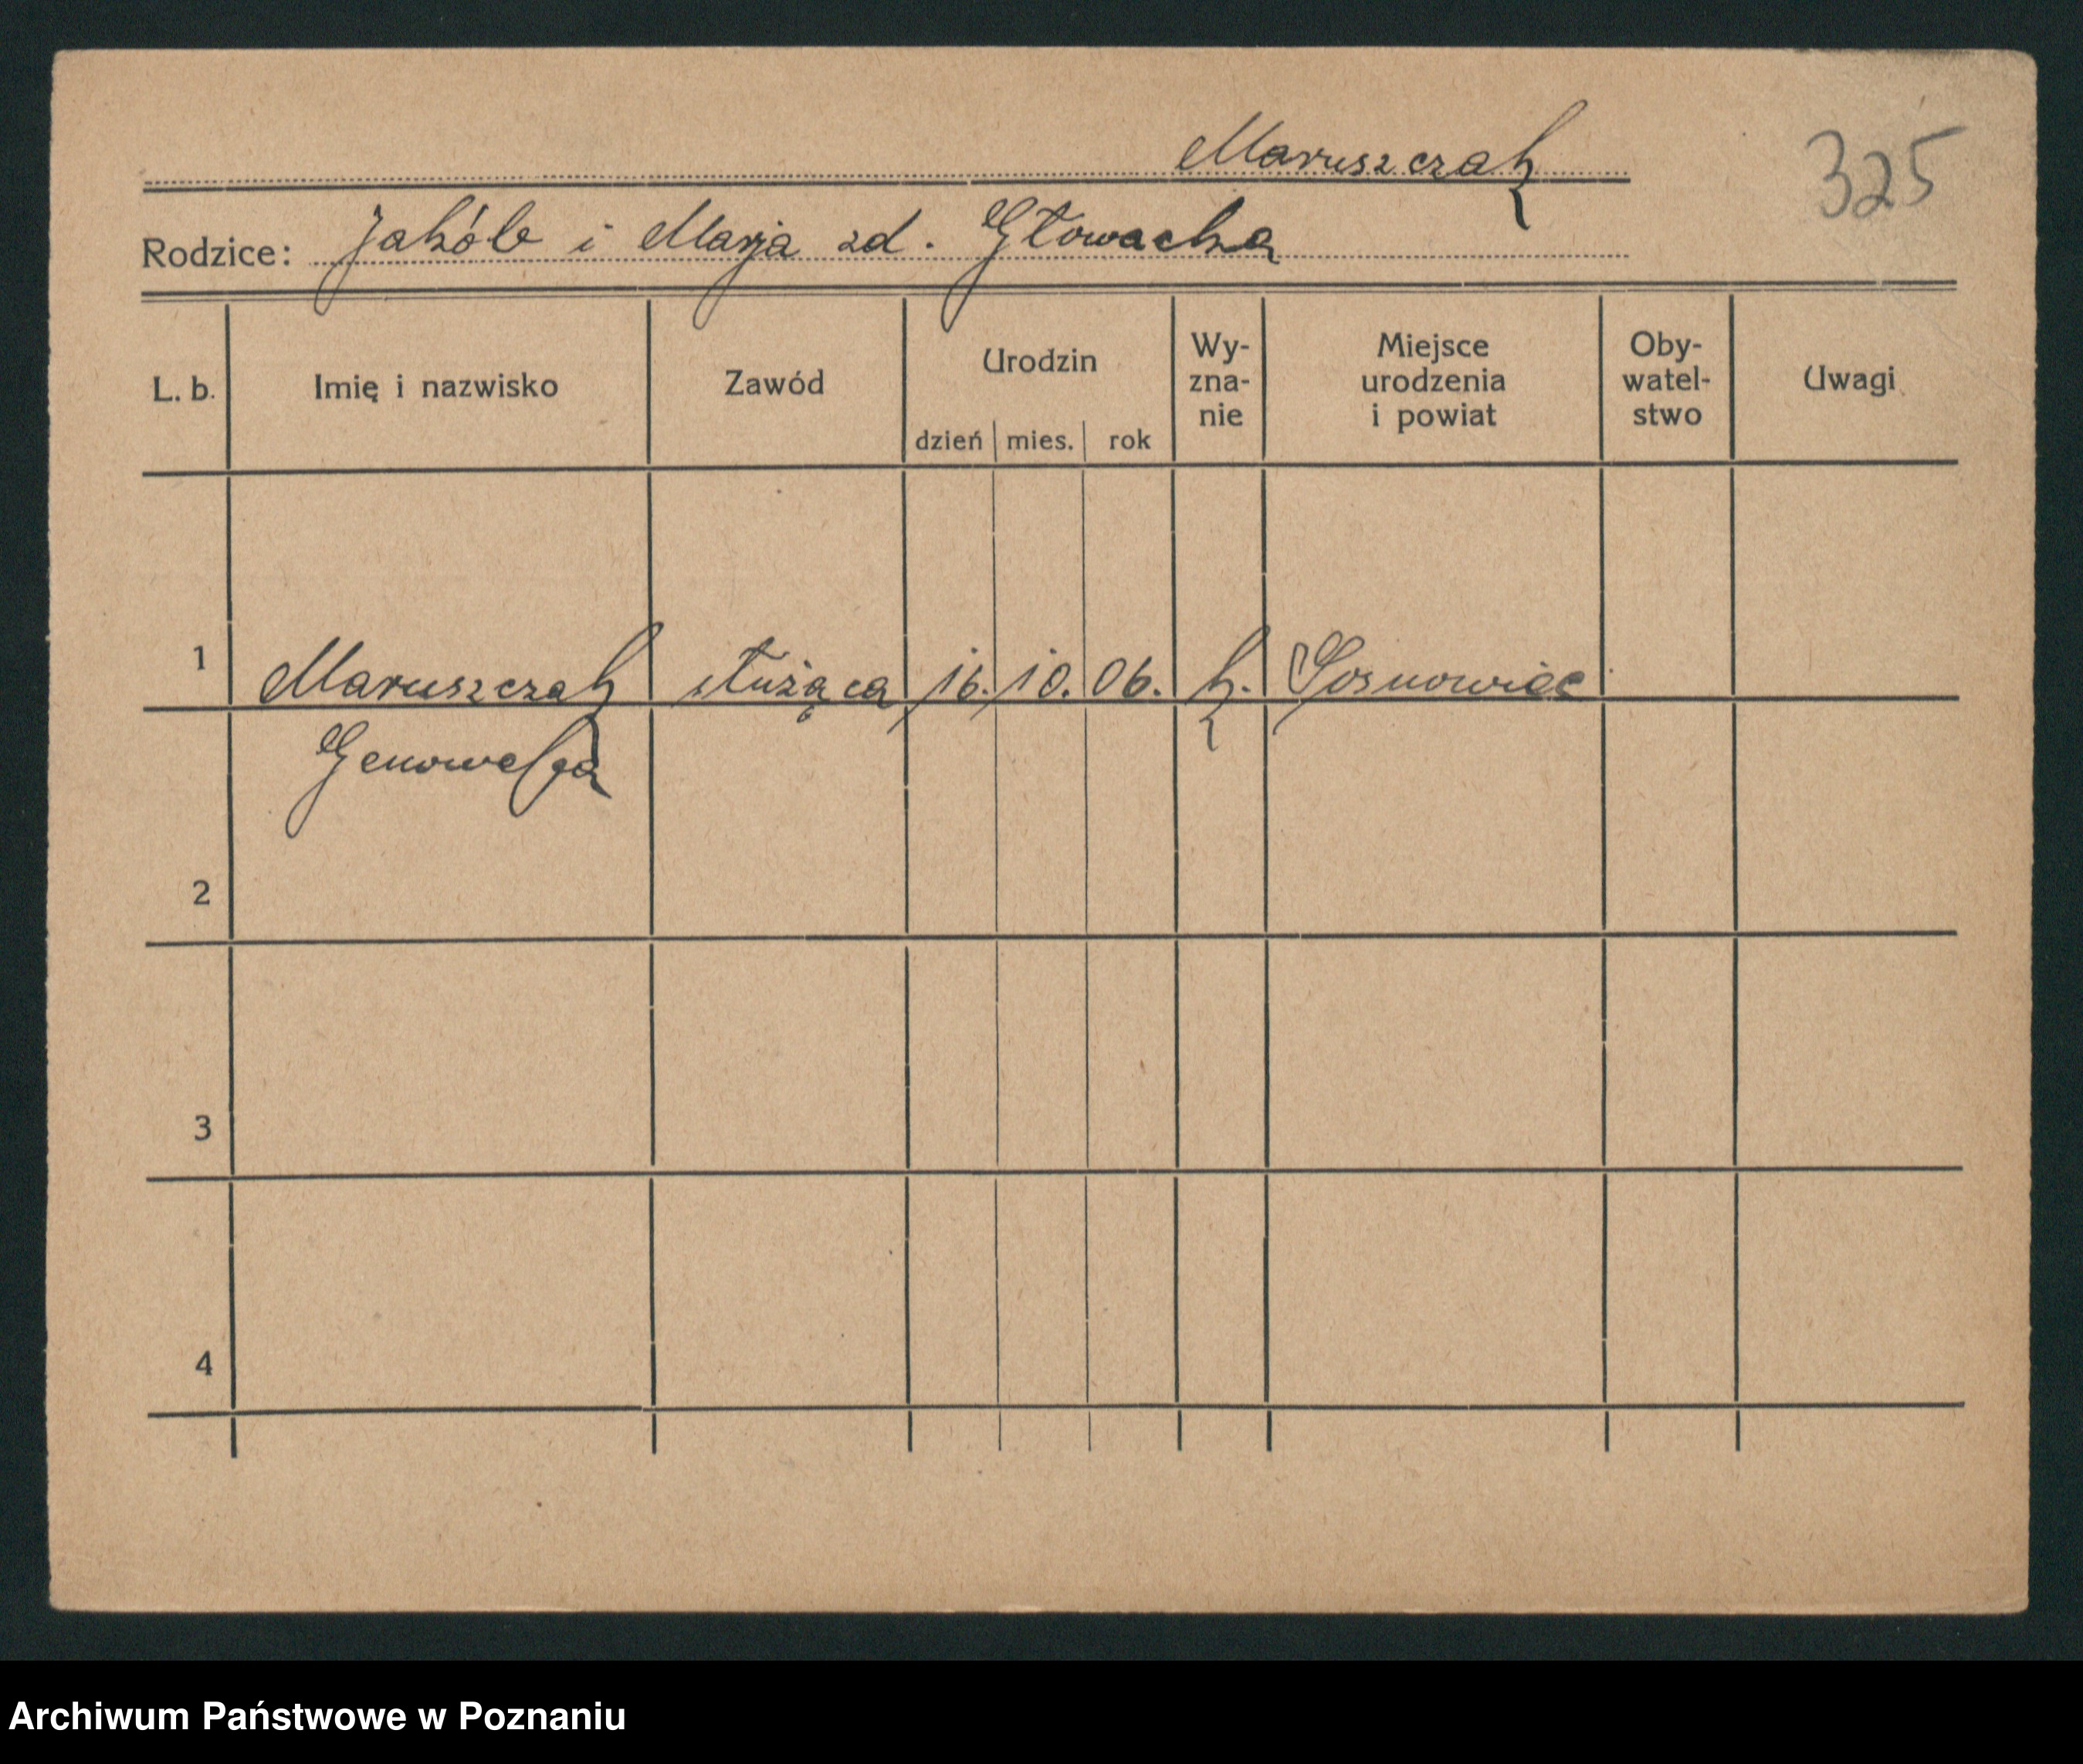 Maruszczak
325
Rodzice: Jakób i Marja zd. Głowacka
L. b. Imię i nazwisko Zawód Urodzin dzień mies. rok Wy-zna-nie Miejsce urodzenia i powiat Oby-watel-stwo Uwagi
1 Maruszczak służąca 16. 10. 06. k. Sosnowiec
Genowefa
2
3
4
Archiwum Państwowe w Poznaniu